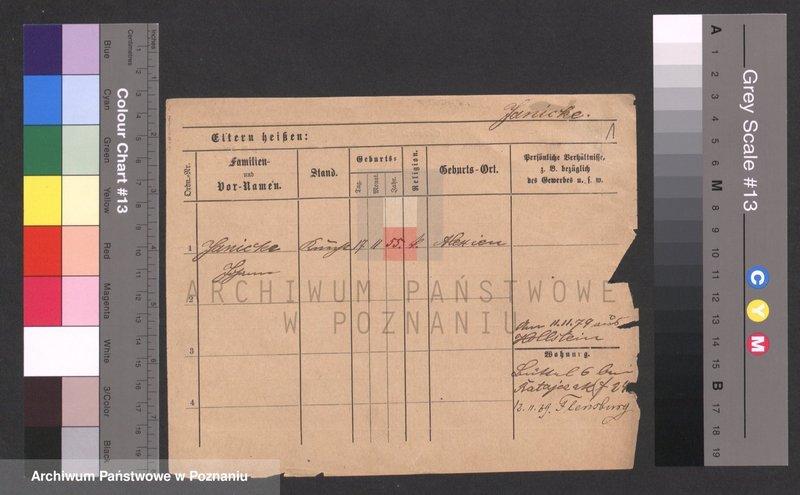 Janicke.
1
Eltern heißen:
Ordn.-Nr.
Familien-
und
Vor-Namen.
Stand.
Geburts-
Tag.
Monat.
Jahr.
Religion.
Geburts-Ort.
Persönliche Verhältnisse,
z. B. bezüglich
des Gewerbes u. s. w.
1 Janicke 17 11 55.
2
3
4
Am 11.11.79 aus
Hollstein
Wohnung.
Büttel 6 bei
Katajczak 7
12.11.79. Flensburg
ARCHIWUM PAŃSTWOWE
W POZNANIU
Archiwum Państwowe w Poznaniu
Colour Chart #13
Blue
Cyan
Green
Yellow
Red
Magenta
White
3/Color
Black
Centimetres
Inches
Grey Scale #13
A 1 2 3 4 5 6 M 8 9 10 11 12 13 14 15 B 17 18 19
C Y M